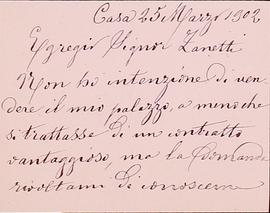 Casa 25 Marzo 1902
Egregio Signor Zanetti
Non ho intenzione di ven
dere il mio palazzo, a meno che
si trattasse di un contratto
vantaggioso, ma la domanda
rivoltami di conoscere